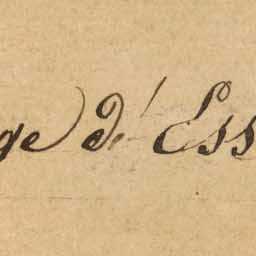 ge d'Ess